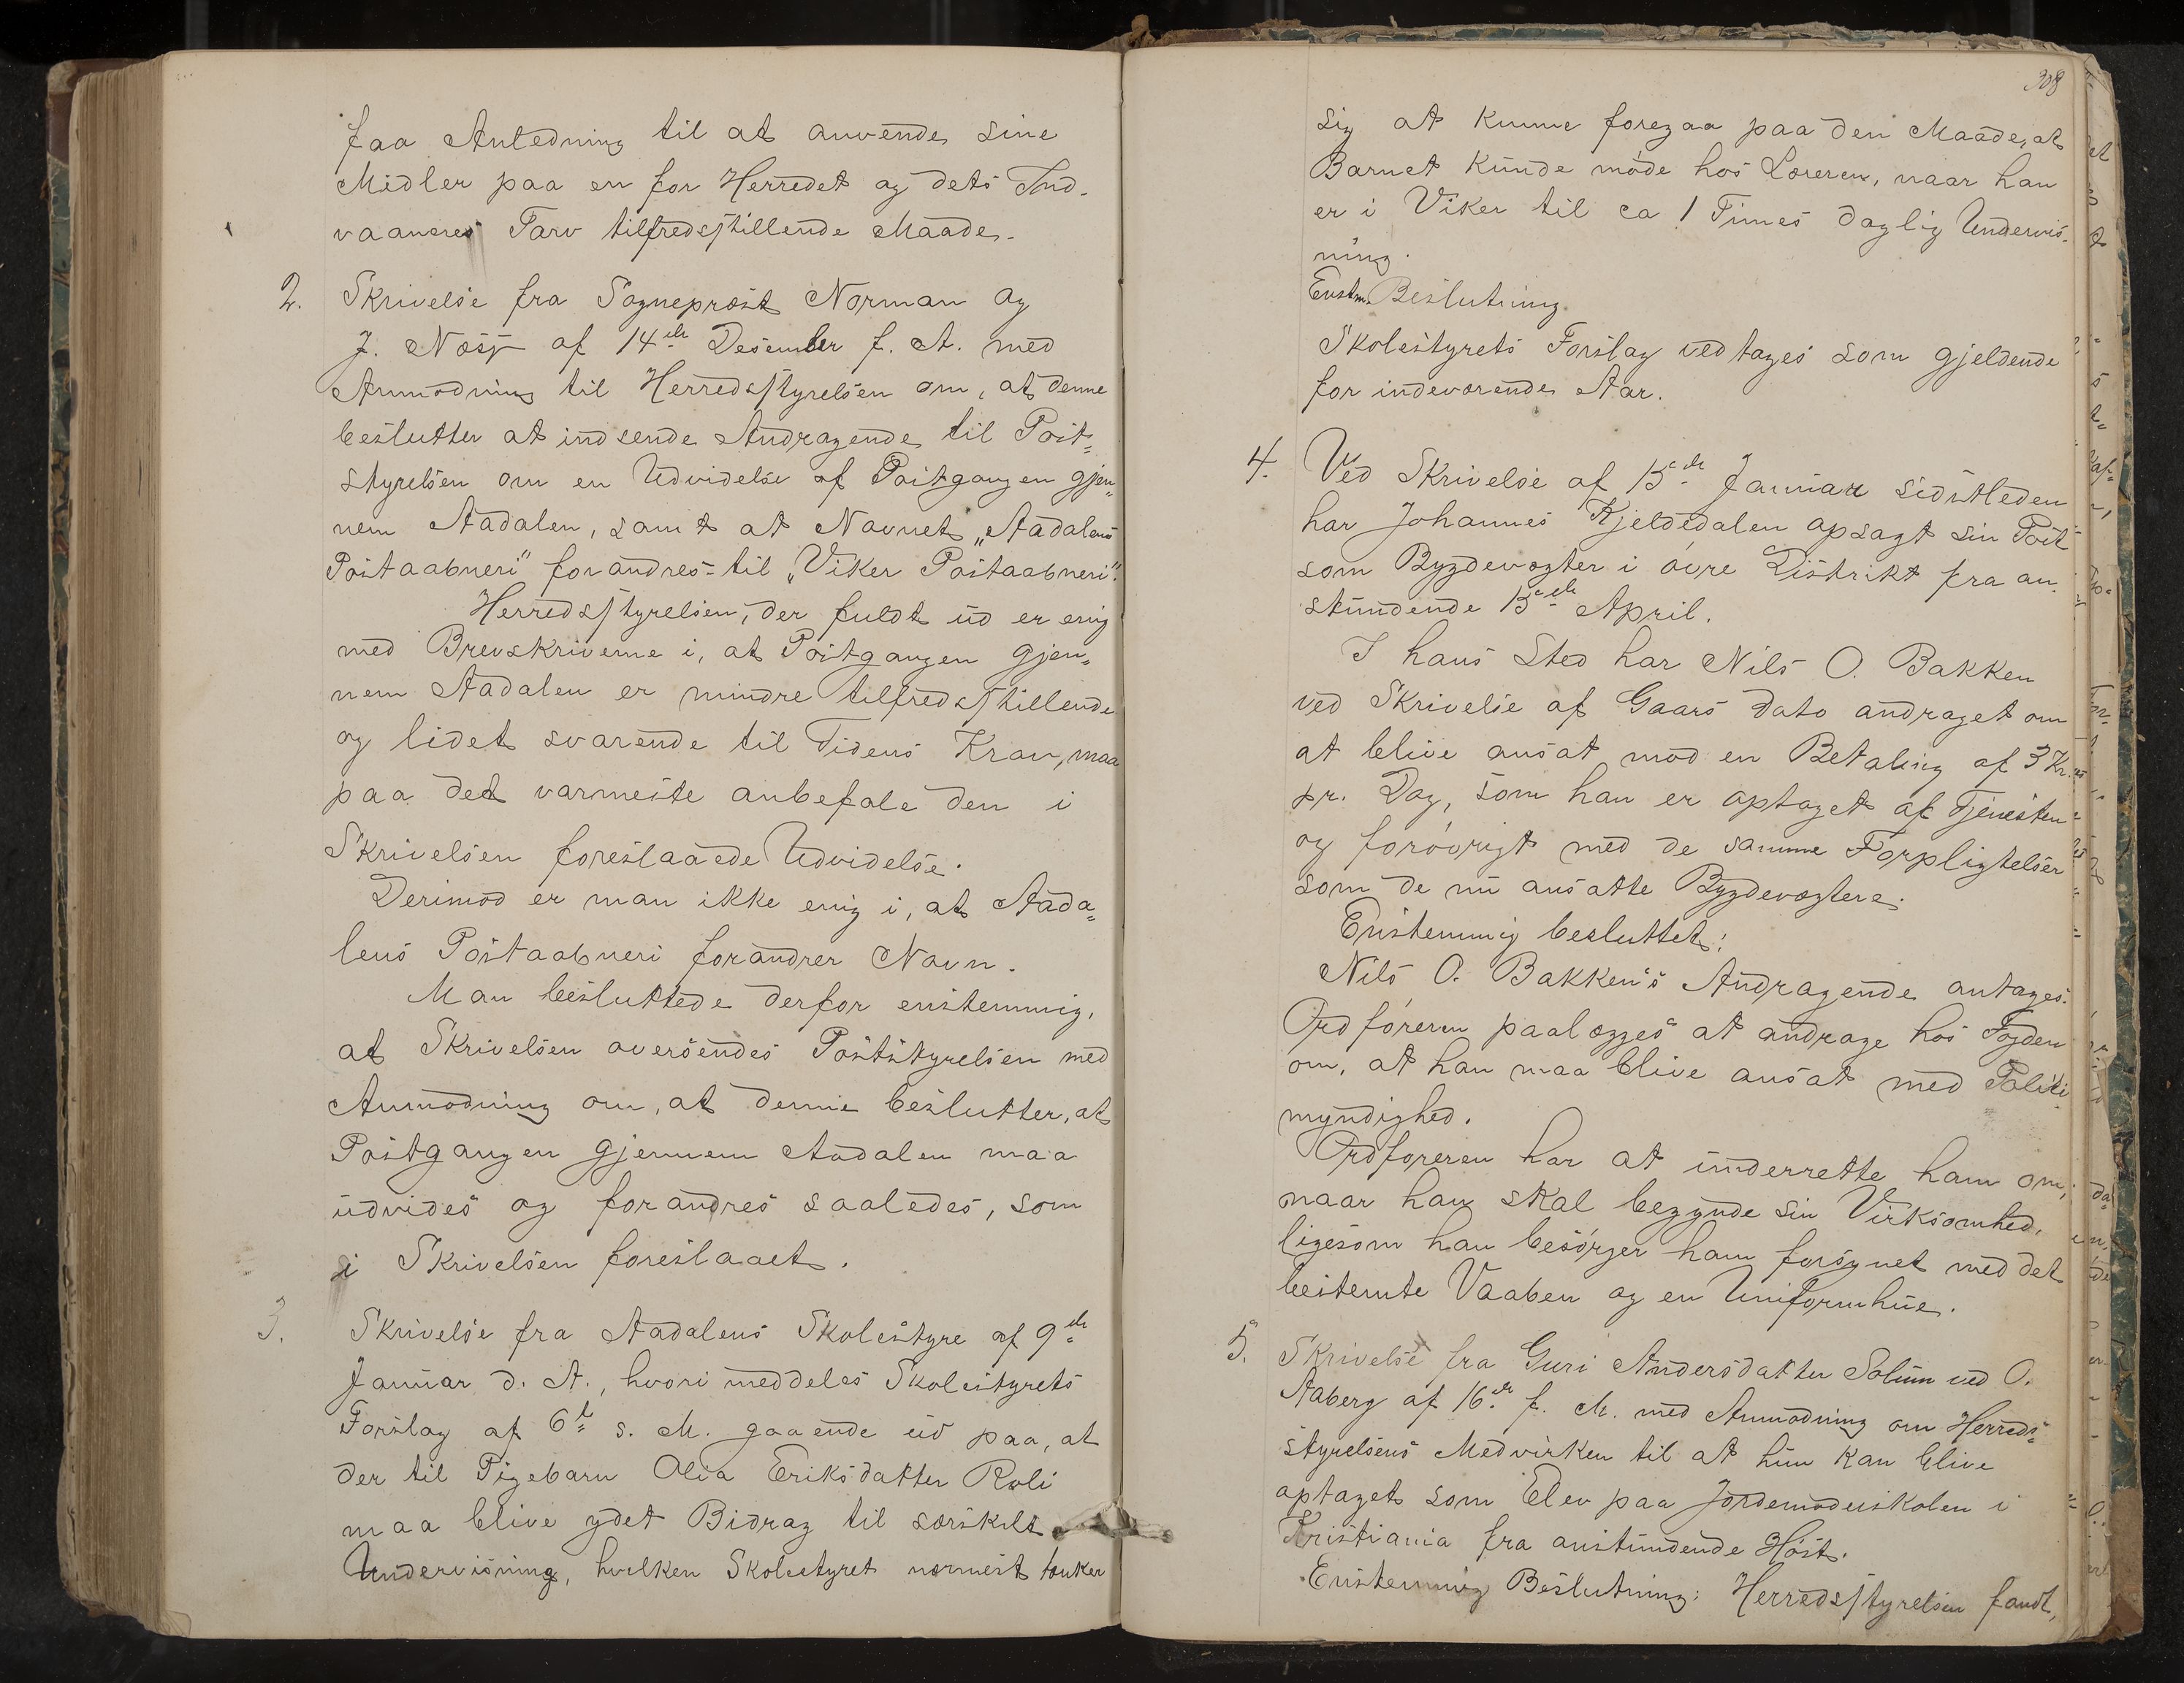 faa Anledning til at anvende sine
Midler paa en for Herredet og dets Ind-
vaaneres Tarv tilfredsstillende Maade.
2. Skrivelse fra Sogneprest Norman og
J. Næss af 14de Desember f. A. med
Anmodning til Herredsstyrelsen om, at denne
beslutter at indsende Andragende til Post=
styrelsen om en Udvidelse af Postgangen gjen=
nem Aadalen, samt at Navnet „Aadalens
Postaabneri" forandres til „Viker Postaabneri".
Herredsstyrelsen, der fuldt ud er enig
med Brevskriverne i, at Postgangen gjen=
nem Aadalen er mindre tilfredsstillende
og lidet svarende til Tidens Krav, maa
paa det varmeste anbefale den i
Skrivelsen foreslaaede Udvidelse.
Derimod er man ikke enig i, at Aada=
lens Postaabneri forandrer Navn.
Man besluttede derfor enstemmig,
at Skrivelsen oversendes Poststyrelsen med
Anmodning om, at denne beslutter, at
Postgangen gjennem Aadalen maa
udvides og forandres saaledes, som
i Skrivelsen foreslaaet.
3. Skrivelse fra Aadalens Skolestyre af 9de
Januar d. A., hvori meddeles Skolestyrets
Forslag af 6te s. M. gaaende ud paa, at
der til Pigebarn Olia Eriksdatter Roli
maa blive ydet Bidrag til særskilt
Undervisning, hvilken Skolestyret nærmest tænker
308
sig at kunne foregaa paa den Maade, at
Barnet kunde møde hos Læreren, naar han
er i Viker til ca 1 Times daglig Undervis-
ning.
Enstm. Beslutning
Skolestyrets Forslag vedtages som gjeldende
for indeværende Aar.
4. Ved Skrivelse af 15de Januar sidstleden
har Johannes Kjeldedalen opsagt sin Post
som Bygdevogter i øvre Distrikt fra an-
stundende 15de April.
I hans Sted har Nils O. Bakken
ved Skrivelse af Gaars Dato andraget om
at blive ansat mod en Betaling af 3 Kr.
pr. Dag, som han er optaget af Tjenesten
og forøvrigt med de samme Forpligtelser
som de nu ansatte Bygdevogtere.
Enstemmig besluttet:
Nils O. Bakken's Andragende antages.
Ordføreren paalægges at andrage hos Fogden
om, at han maa blive ansat med Politi
myndighed.
Ordføreren har at underrette ham om,
naar han skal begynde sin Virksomhed,
ligesom han besørger ham forsynet med det
bestemte Vaaben og en Uniformhue.
5. Skrivelse fra Guri Andersdatter Solum ved O.
Aaberg af 16de f. M. med Anmodning om Herreds=
styrelsens Medvirken til at hun kan blive
optaget som Elev paa Jordemoderskolen i
Kristiania fra anstundende Høst.
Enstemmig Beslutning: Herredsstyrelsen fandt,